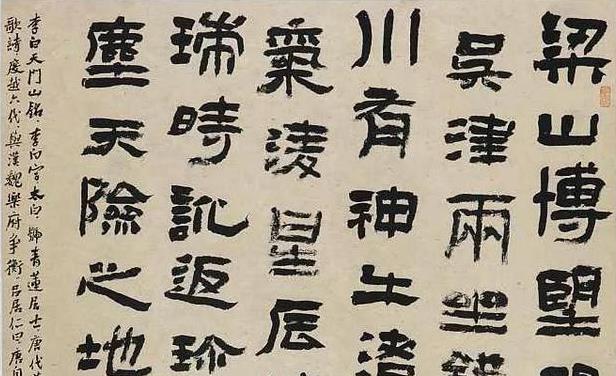 梁山博望
吳津兩坐錯
川有神牛渚
氣淩星辰
瑞時訛返珍
塵天險之地
李白天門山銘李白字太白號青蓮居士唐代
歌詩度越六代與漢魏樂府爭衡呂居仁曰唐自